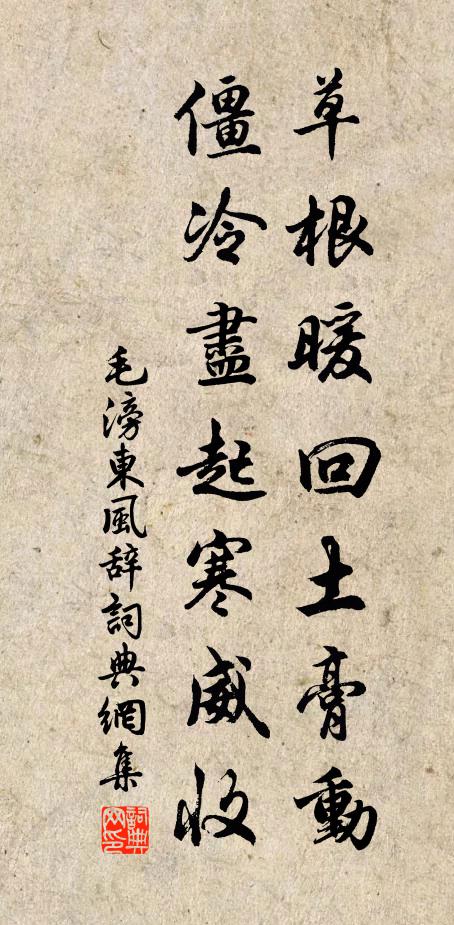 草根暖回土膏動
僵冷盡起寒威收
毛滂東風辞詞典網集
詞典網印